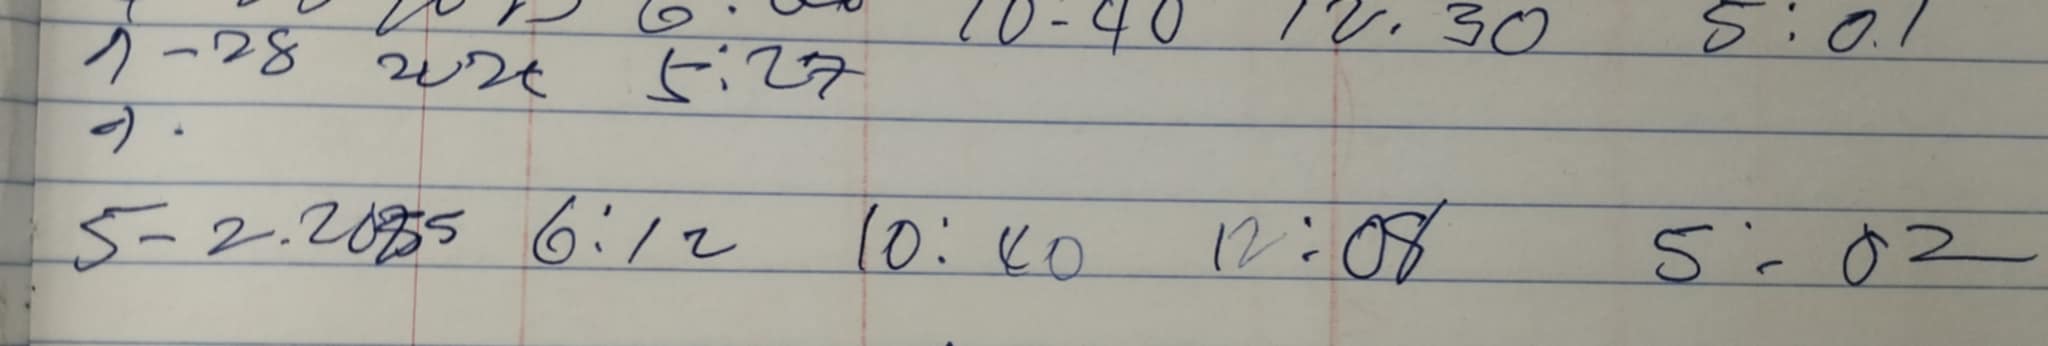 10-40 12.30 5:01
1-28 202 5:27
5-2.2025 6:12 10:40 12:08 5:02